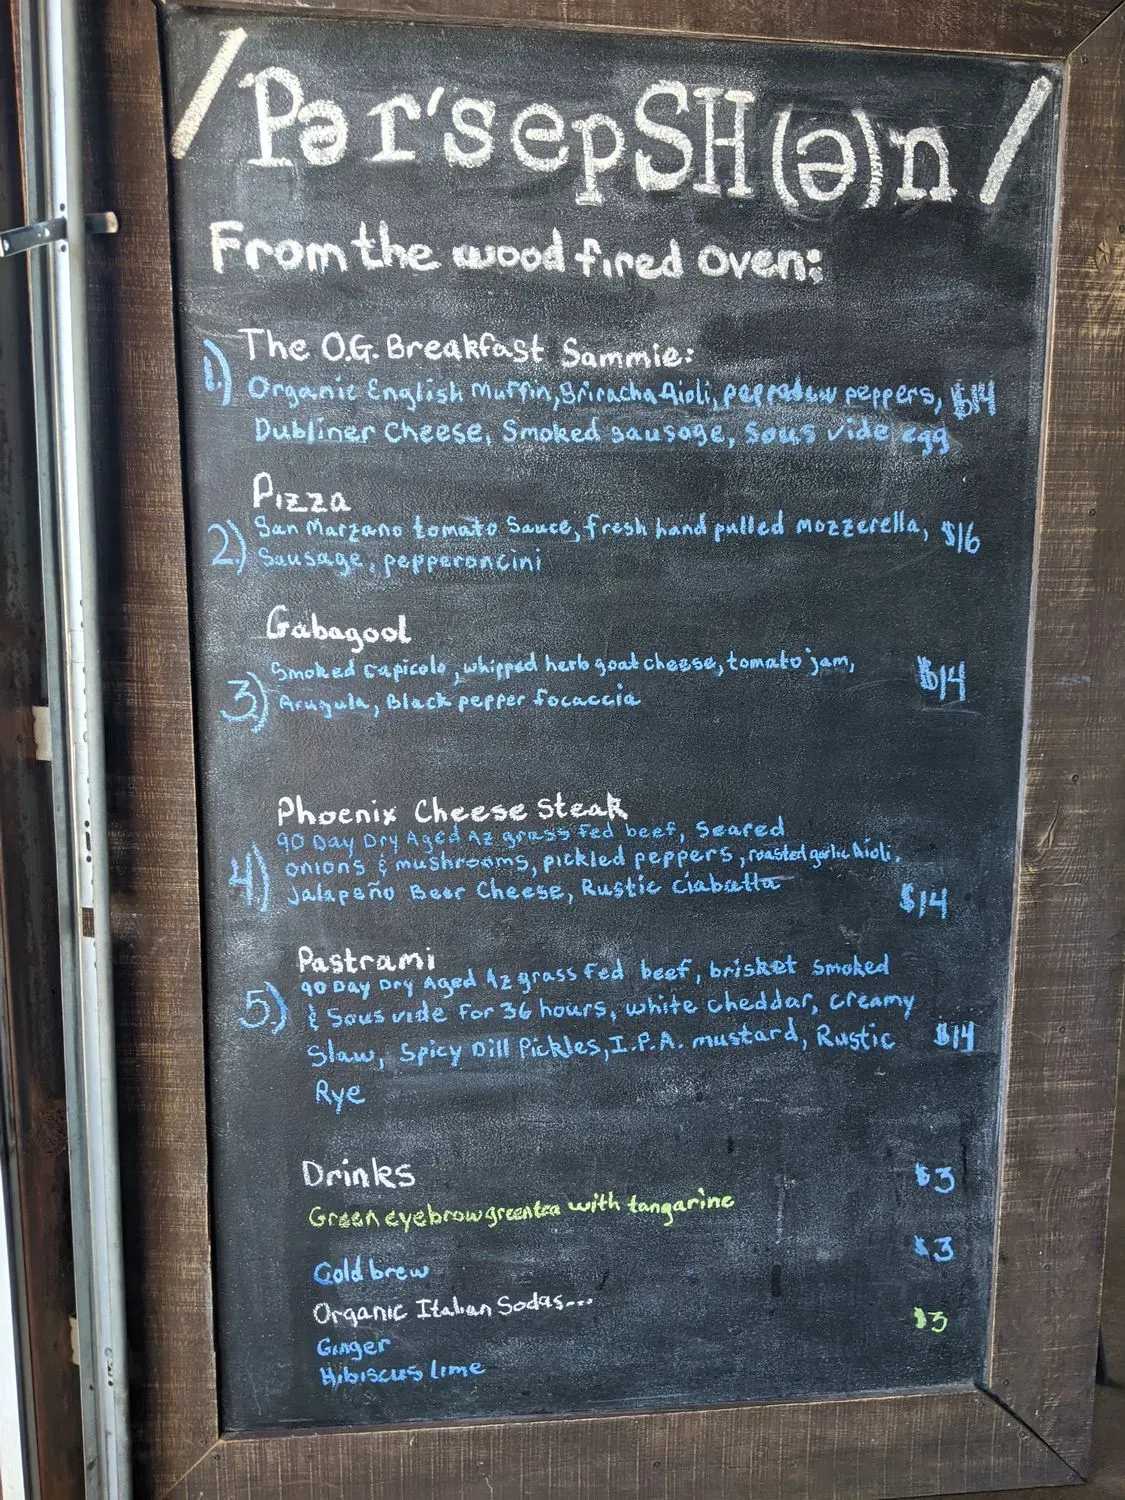 /Pər'sepSH(ə)n/
From the wood fired oven:
The O.G. Breakfast Sammie:
1.) Organic English Muffin, Sriracha Aioli, peppadew peppers, $14
Dubliner Cheese, Smoked sausage, Sous vide egg
Pizza
2) San Marzano tomato Sauce, fresh hand pulled mozzerella, $16
Sausage, pepperoncini
Gabagool
Smoked capicolo, whipped herb goat cheese, tomato jam, $14
3) Arugula, Black pepper focaccia
Phoenix Cheese Steak
90 Day Dry Aged Az grass fed beef, Seared
4) onions & mushrooms, pickled peppers, roasted garlic Aioli,
Jalapeño Beer Cheese, Rustic Ciabatta $14
Pastrami
90 Day Dry Aged Az grass fed beef, brisket smoked
5.) & Sous vide for 36 hours, white cheddar, creamy
Slaw, Spicy Dill Pickles, I.P.A. mustard, Rustic $14
Rye
Drinks $3
Green eyebrow green tea with tangarine
$3
Cold brew
Organic Italian Sodas... $3
Ginger
Hibiscus lime